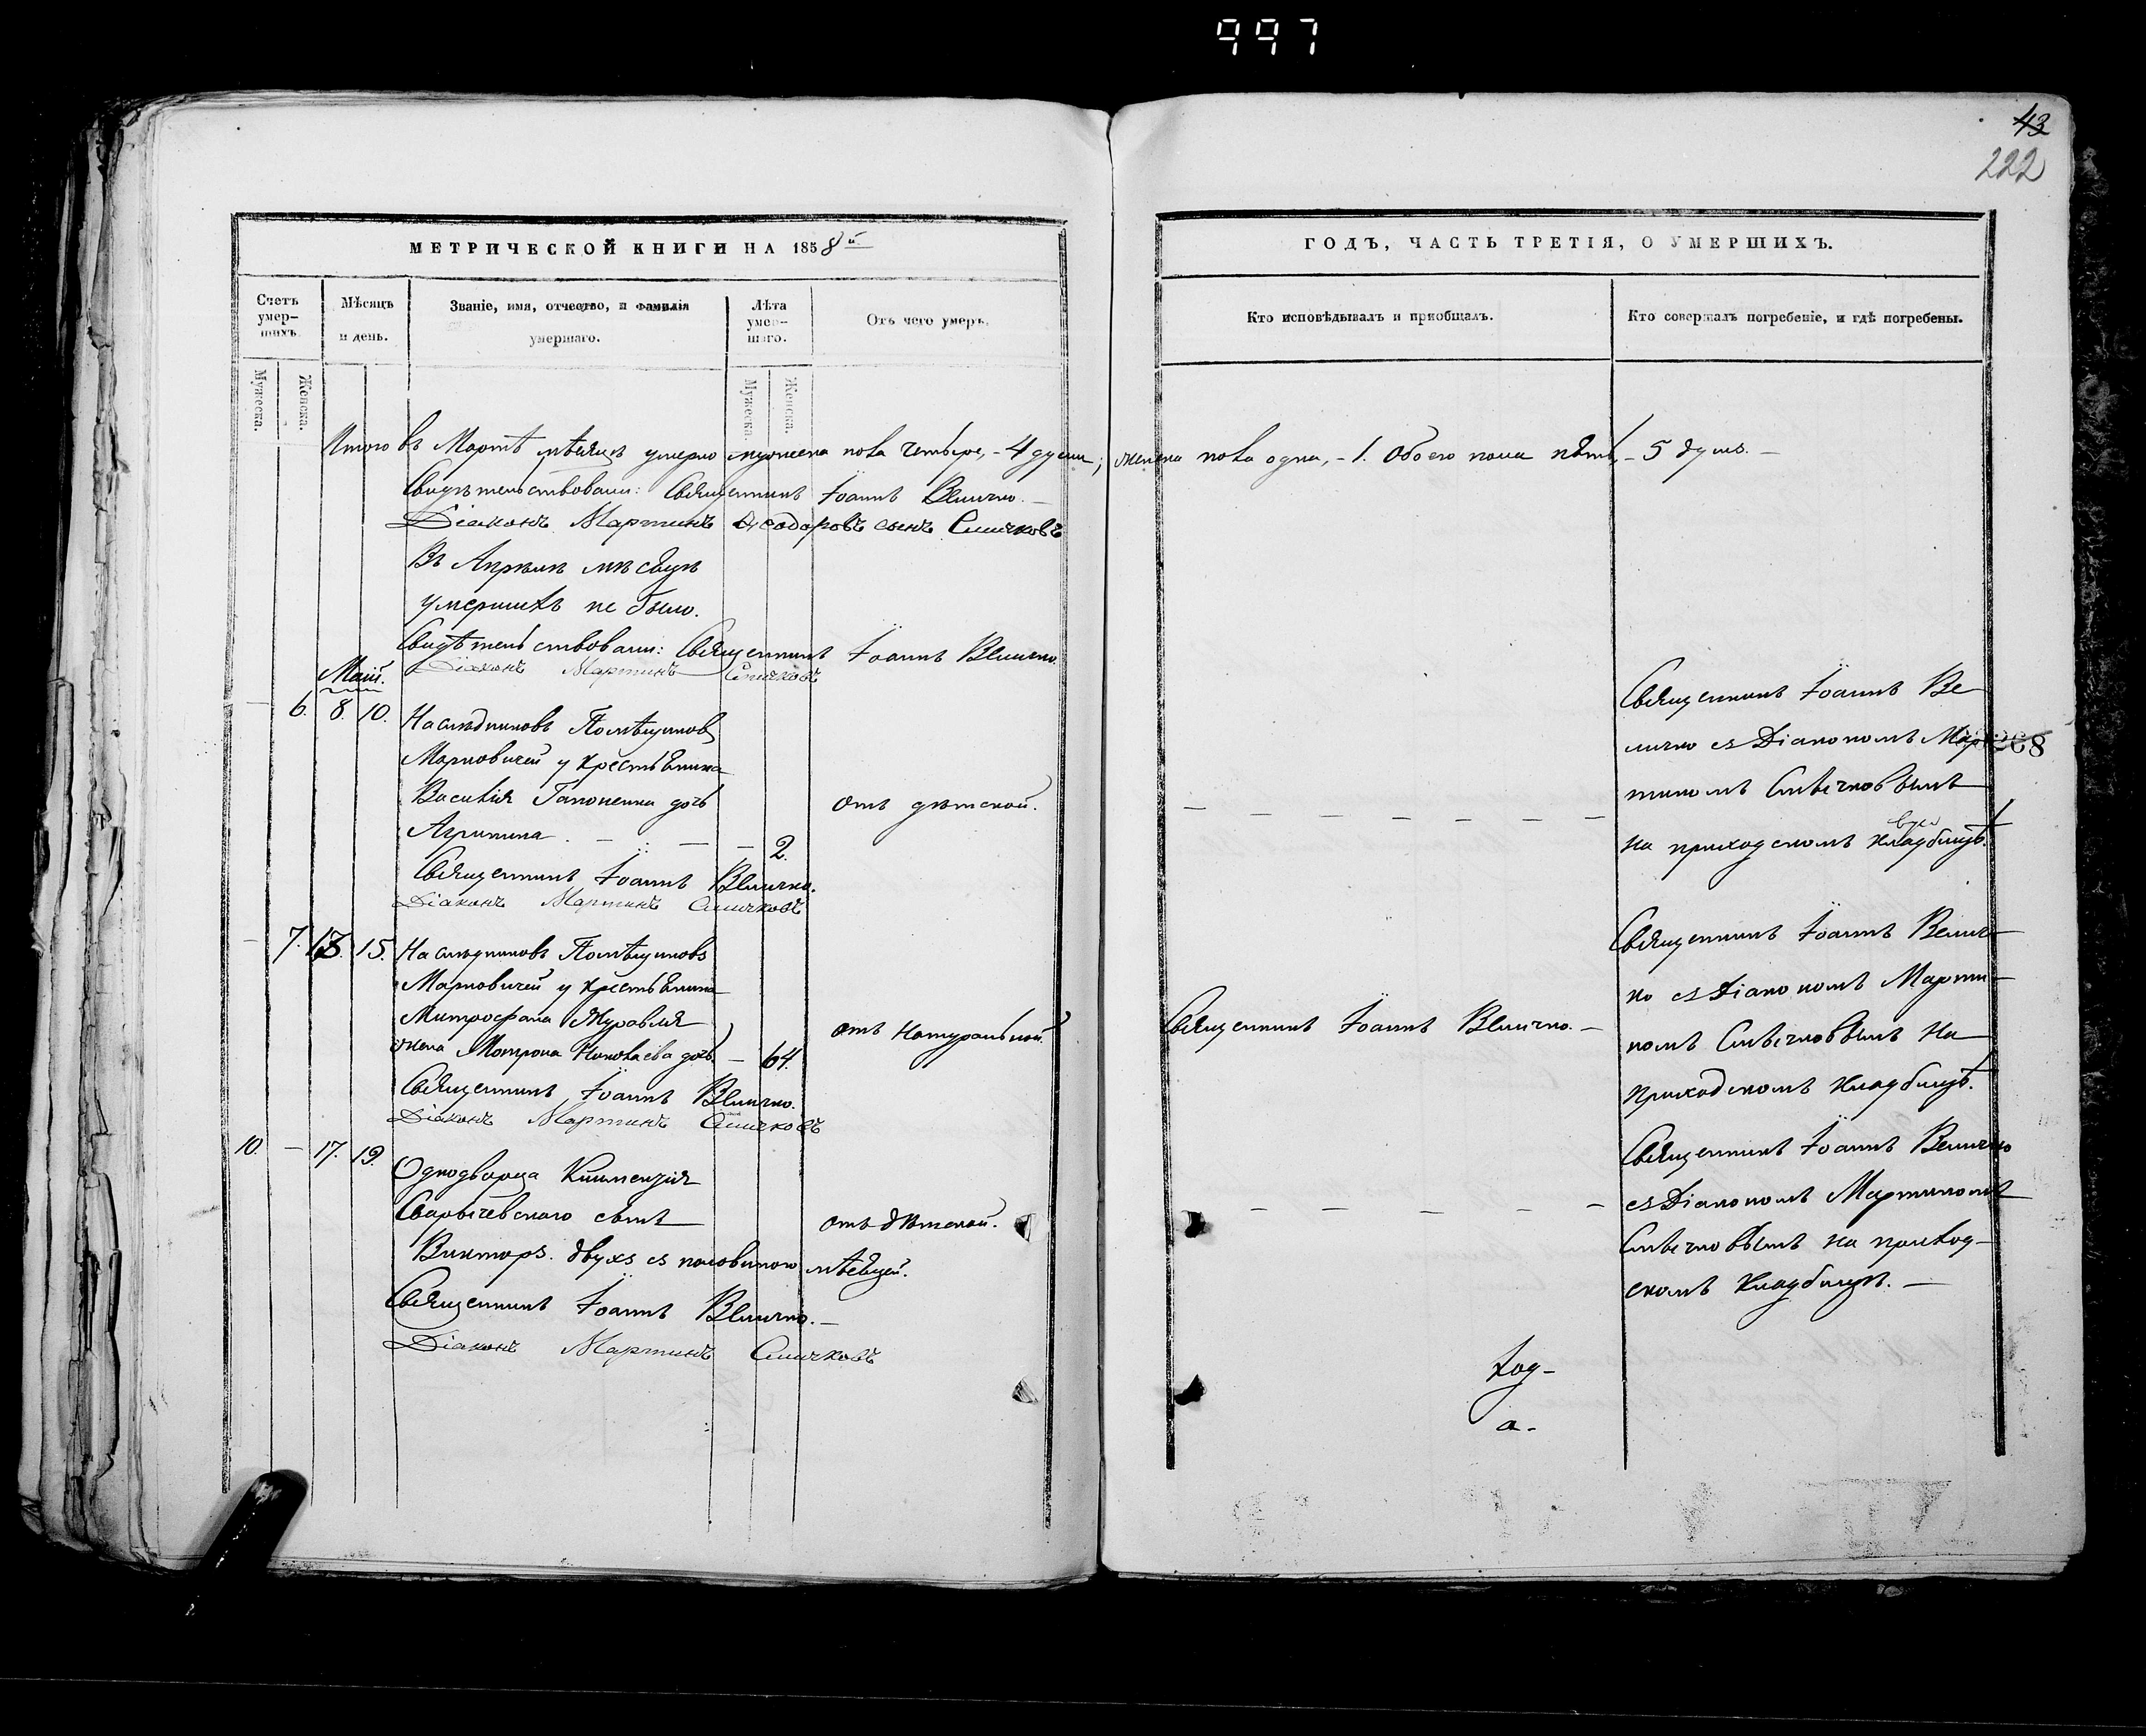 997
43
222
МЕТРИЧЕСКОЙ КНИГИ НА 1858й
ГОДЪ, ЧАСТЬ ТРЕТІЯ, О УМЕРШИХЪ.
Счетъ умер-шихъ.
Мѣсяцъ и день.
Званіе, имя, отчество, и фамилія умершаго.
Лѣта умер-шаго.
Отъ чего умеръ.
Кто исповѣдывалъ и пріобщалъ.
Кто совершалъ погребеніе, и гдѣ погребены.
Мужеска.
Женска.
Мужеска.
Женска.
Итого въ Мартѣ мѣсяцѣ умерло мужеска пола четыре, - 4 души; женска пола одна, - 1. Обоего пола пять, - 5 душъ. -
Свидѣтельствовали: Священникъ Іоаннъ Величко. -
Діаконъ Мартинъ Ѳеодоровъ сынъ
Въ Апрѣлѣ мѣсяцѣ
умершихъ не было.
Свидѣтельствовали: Священникъ Іоаннъ Величко.
Діаконъ Мартинъ
Маій.
- 6. 8. 10. Наслѣдниковъ Помѣщиковъ
Марковичей у крестьянина
Василія Гапоненка дочь
Агрипина - - - 2.
отъ дѣтской.
Священникъ Іоаннъ Величко.
Діаконъ Мартинъ
Священникъ Іоаннъ Ве
личко съ Діакономъ Мар
тиномъ
на приходскомъ кладбищѣ.
268
- 7. 13. 15. Наслѣдниковъ Помѣщиковъ
Марковичей у крестьянина
Митрофана Журавля
жена Матрона Николаева дочь - 64.
отъ Натуральной.
Священникъ Іоаннъ Величко.
Діаконъ Мартинъ
Священникъ Іоаннъ Величко. -
Священникъ Іоаннъ Велич-
ко съ Діакономъ Марти-
номъ на
приходскомъ кладбищѣ.
10. - 17. 19. Однодворца
сынъ
Викторъ. двухъ съ половиною мѣсяцей.
отъ дѣтской.
Священникъ Іоаннъ Величко. -
Діаконъ Мартинъ
Священникъ Іоаннъ Величко
съ Діакономъ Мартиномъ
на приход-
скомъ кладбищѣ. -
год-
а.